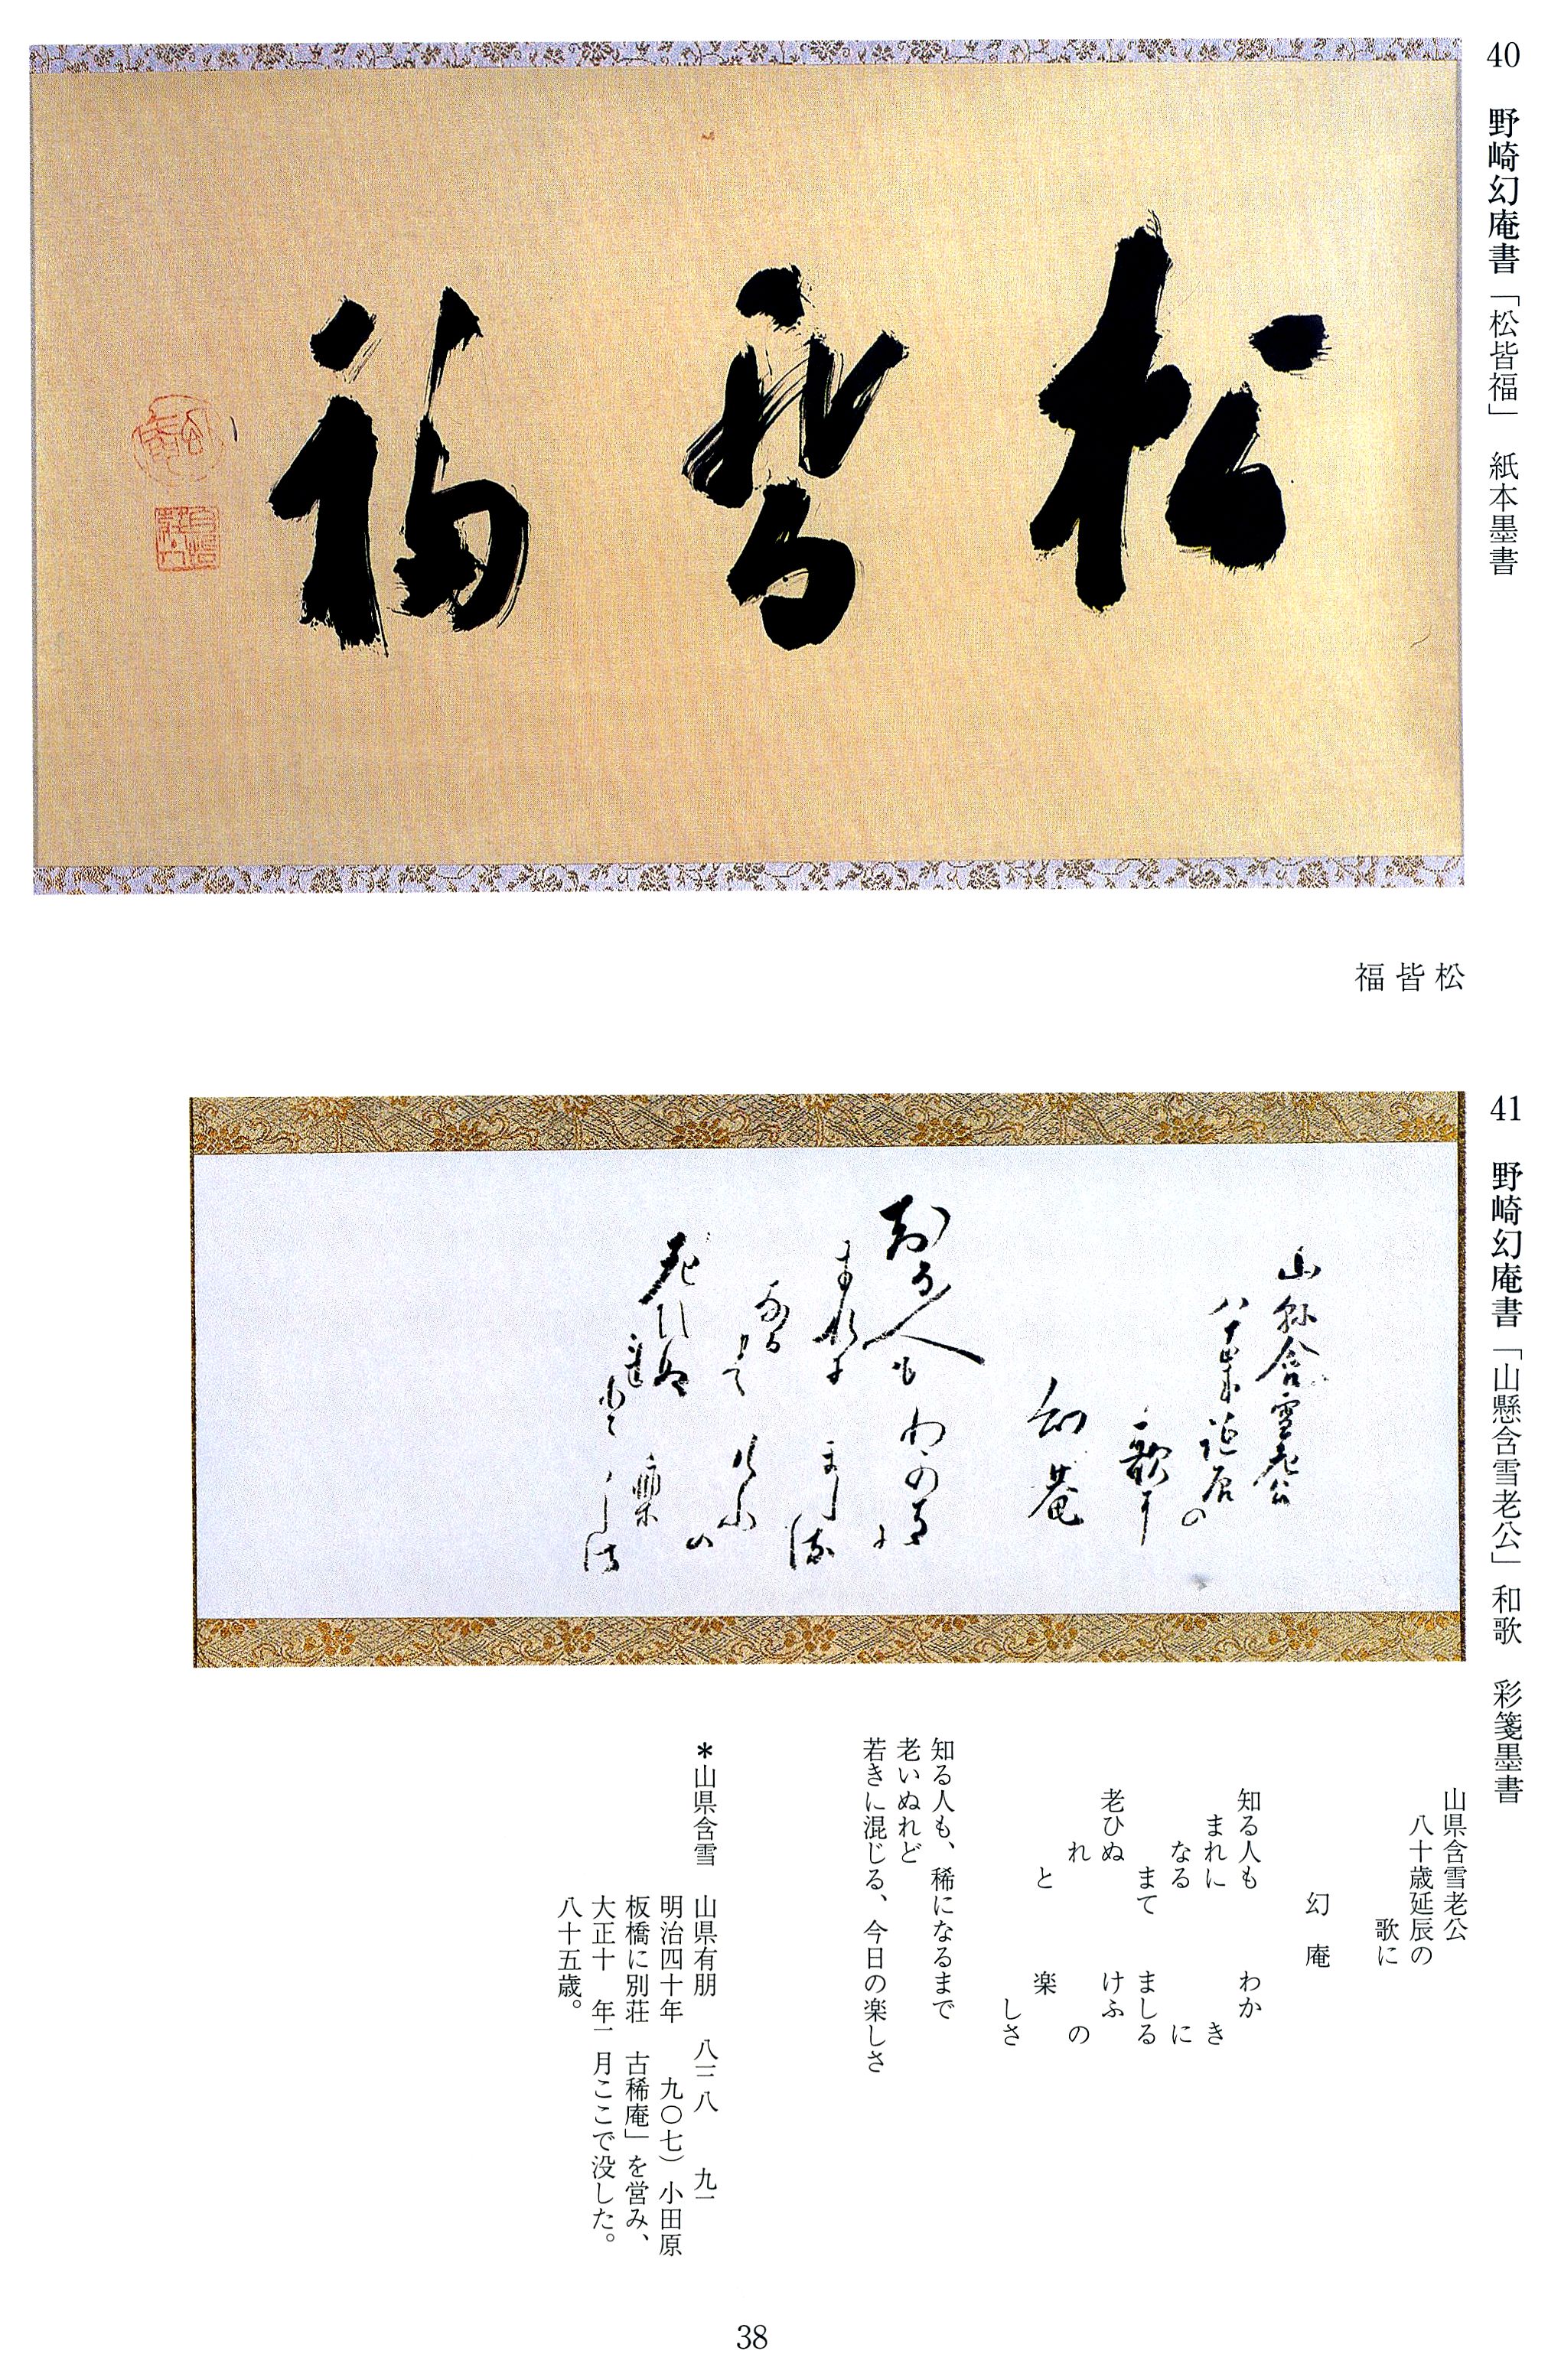 40　野崎幻庵書「松皆福」　紙本墨書
松皆福
福皆松
41　野崎幻庵書「山懸含雪老公」和歌　彩箋墨書
山縣含雪老公
八十歳延辰の
歌に
幻庵
山県含雪老公
八十歳延辰の
歌に
幻　庵
知る人も　わか
まれに　き
なる　に
まて　ましる
老ひぬ　けふ
れ　の
と　楽
しさ
知る人も、稀になるまで
老いぬれど
若きに混じる、今日の楽しさ
＊山県含雪　山県有朋　八三八　九一
明治四十年　九〇七）小田原
板橋に別荘　古稀庵」を営み、
大正十　年一月ここで没した。
八十五歳。
38